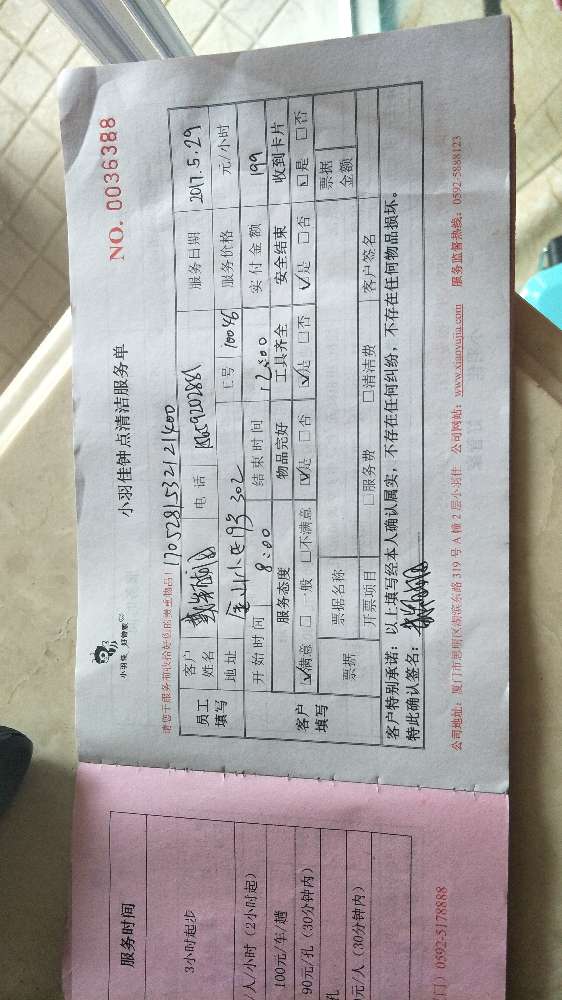 小羽佳 好管家
小羽佳钟点清洁服务单
NO. 0036388
1705281532121400
员工填写
客户姓名
电话
服务日期 2017.5.29
地址
302
工号 10046
服务价格 元/小时
开始时间 8:00
结束时间 12:00
实付金额 199
客户填写
服务态度
物品完好
工具齐全
安全结束
收到卡片
☑满意 □一般 □不满意
☑是 □否
☑是 □否
☑是 □否
☑是 □否
票据
票据名称
票据金额
开票项目
□服务费 □清洁费
客户签名
客户特别承诺：以上填写经本人确认属实，不存在任何纠纷，不存在任何物品损坏。
特此确认签名：
公司地址：厦门市思明区湖滨东路 319 号 A 幢 2 层小羽佳 公司网站：www.xiaoyujia.com 服务监督热线：0592-5888123
服务时间
3小时起步
/人/小时（2小时起）
100元/车/趟
90元/孔（30分钟内）
孔
0元/人（30分钟内）
门）0592-5178888